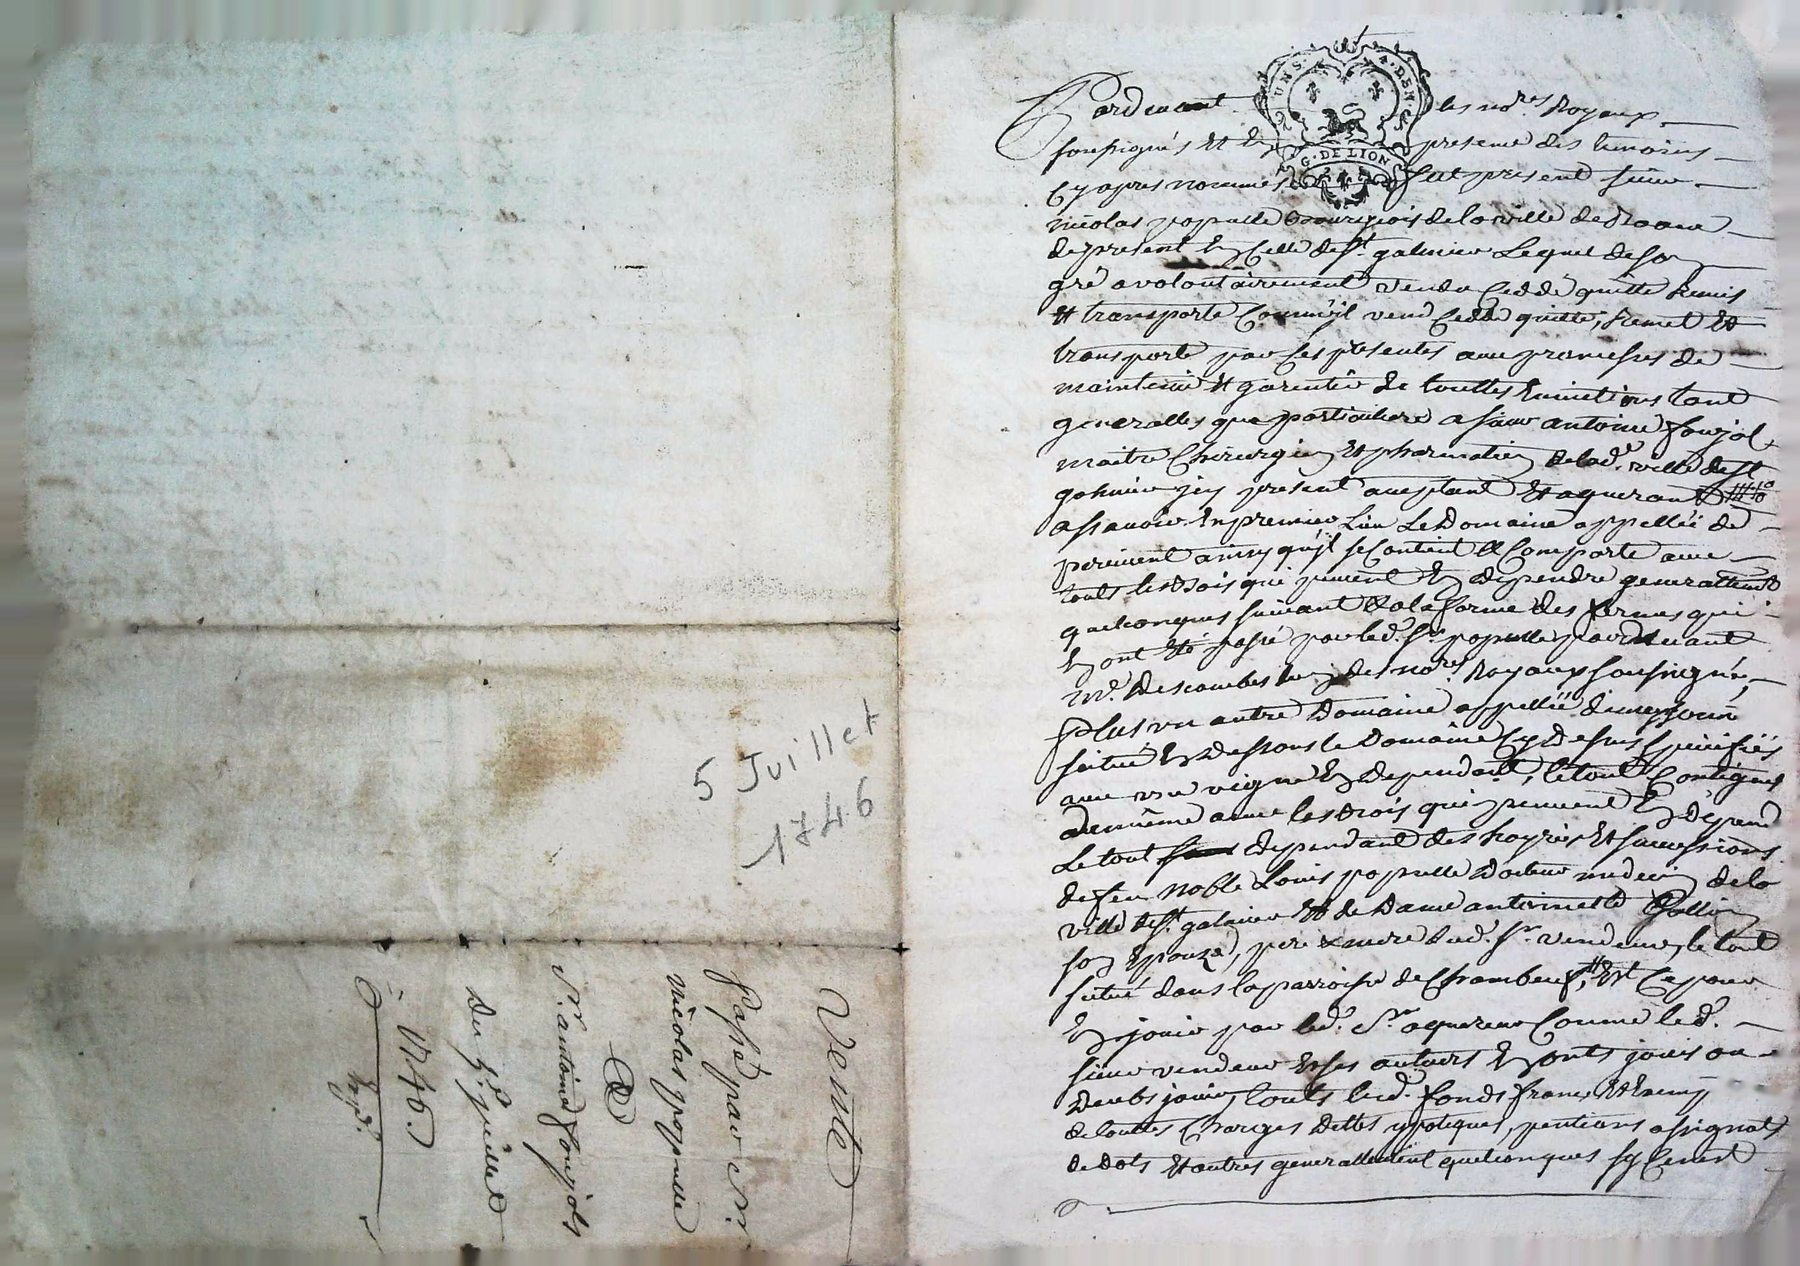 5 Juillet
1746
Vente
Passée par Mr.
nicolas populle
A
Sr. antoine foujols
du 5e juillet
1746.
UN S. 4. DEN
G. DE LION
Pardevant les nores. Royaux
soussignés et en presence des temoins
cy apres nommés fut present sieur
nicolas populle bourgeois de la ville de Roane
de present en celle de St. galmier Lequel de son
gré a volontairement vendu ceddé quitté Remis
et transporté comm'jl vend cedde quitte, Remet et
transporte par ses presentes avec promesses de
maintenir et garentir de touttes evinctions tant
generalles que particuliere a sieur antoine foujol
maitre Chirurgien et pharmatien de lad. ville de St
galmier jcy present aceptant et aquerant
assavoir En premier Lieu Le Domaine appellé de
ainsy qu'jl se Contient et Comporte avec
touts les droits qui peuvent En dependre generallement
quelconques suivant et a la forme des fermes qui
En ont été passé par led. Sr. populle pardevant
Me. Descombes lun des nores. Royaux soussignés,
Plus un autre Domaine appellé
situé En dessous le Domaine cy dessus spécifiés
avec une vigne En dependant, le tout Contigus
de même avec les droits qui peuvent En dépend
Le tout dependant des hoyries et successions
de feu noble Louis populle docteur medecin de la
ville de St. galmier et de Dame antoinette
son Epouze, pere et mere dud. Sr. vendeur, le tout
situé dans la parroisse de Chambeuf, Et Ce pour
En jouir par led. Sr. aquereur Comme led.
sieur vendeur et ses auteurs En onts jouis ou
deubs jouir, touts lesd. fonds francs et
de touttes Charges Dettes ypoteques, pentions assignats
de dots et autres generallement quelconques sy Ce nest